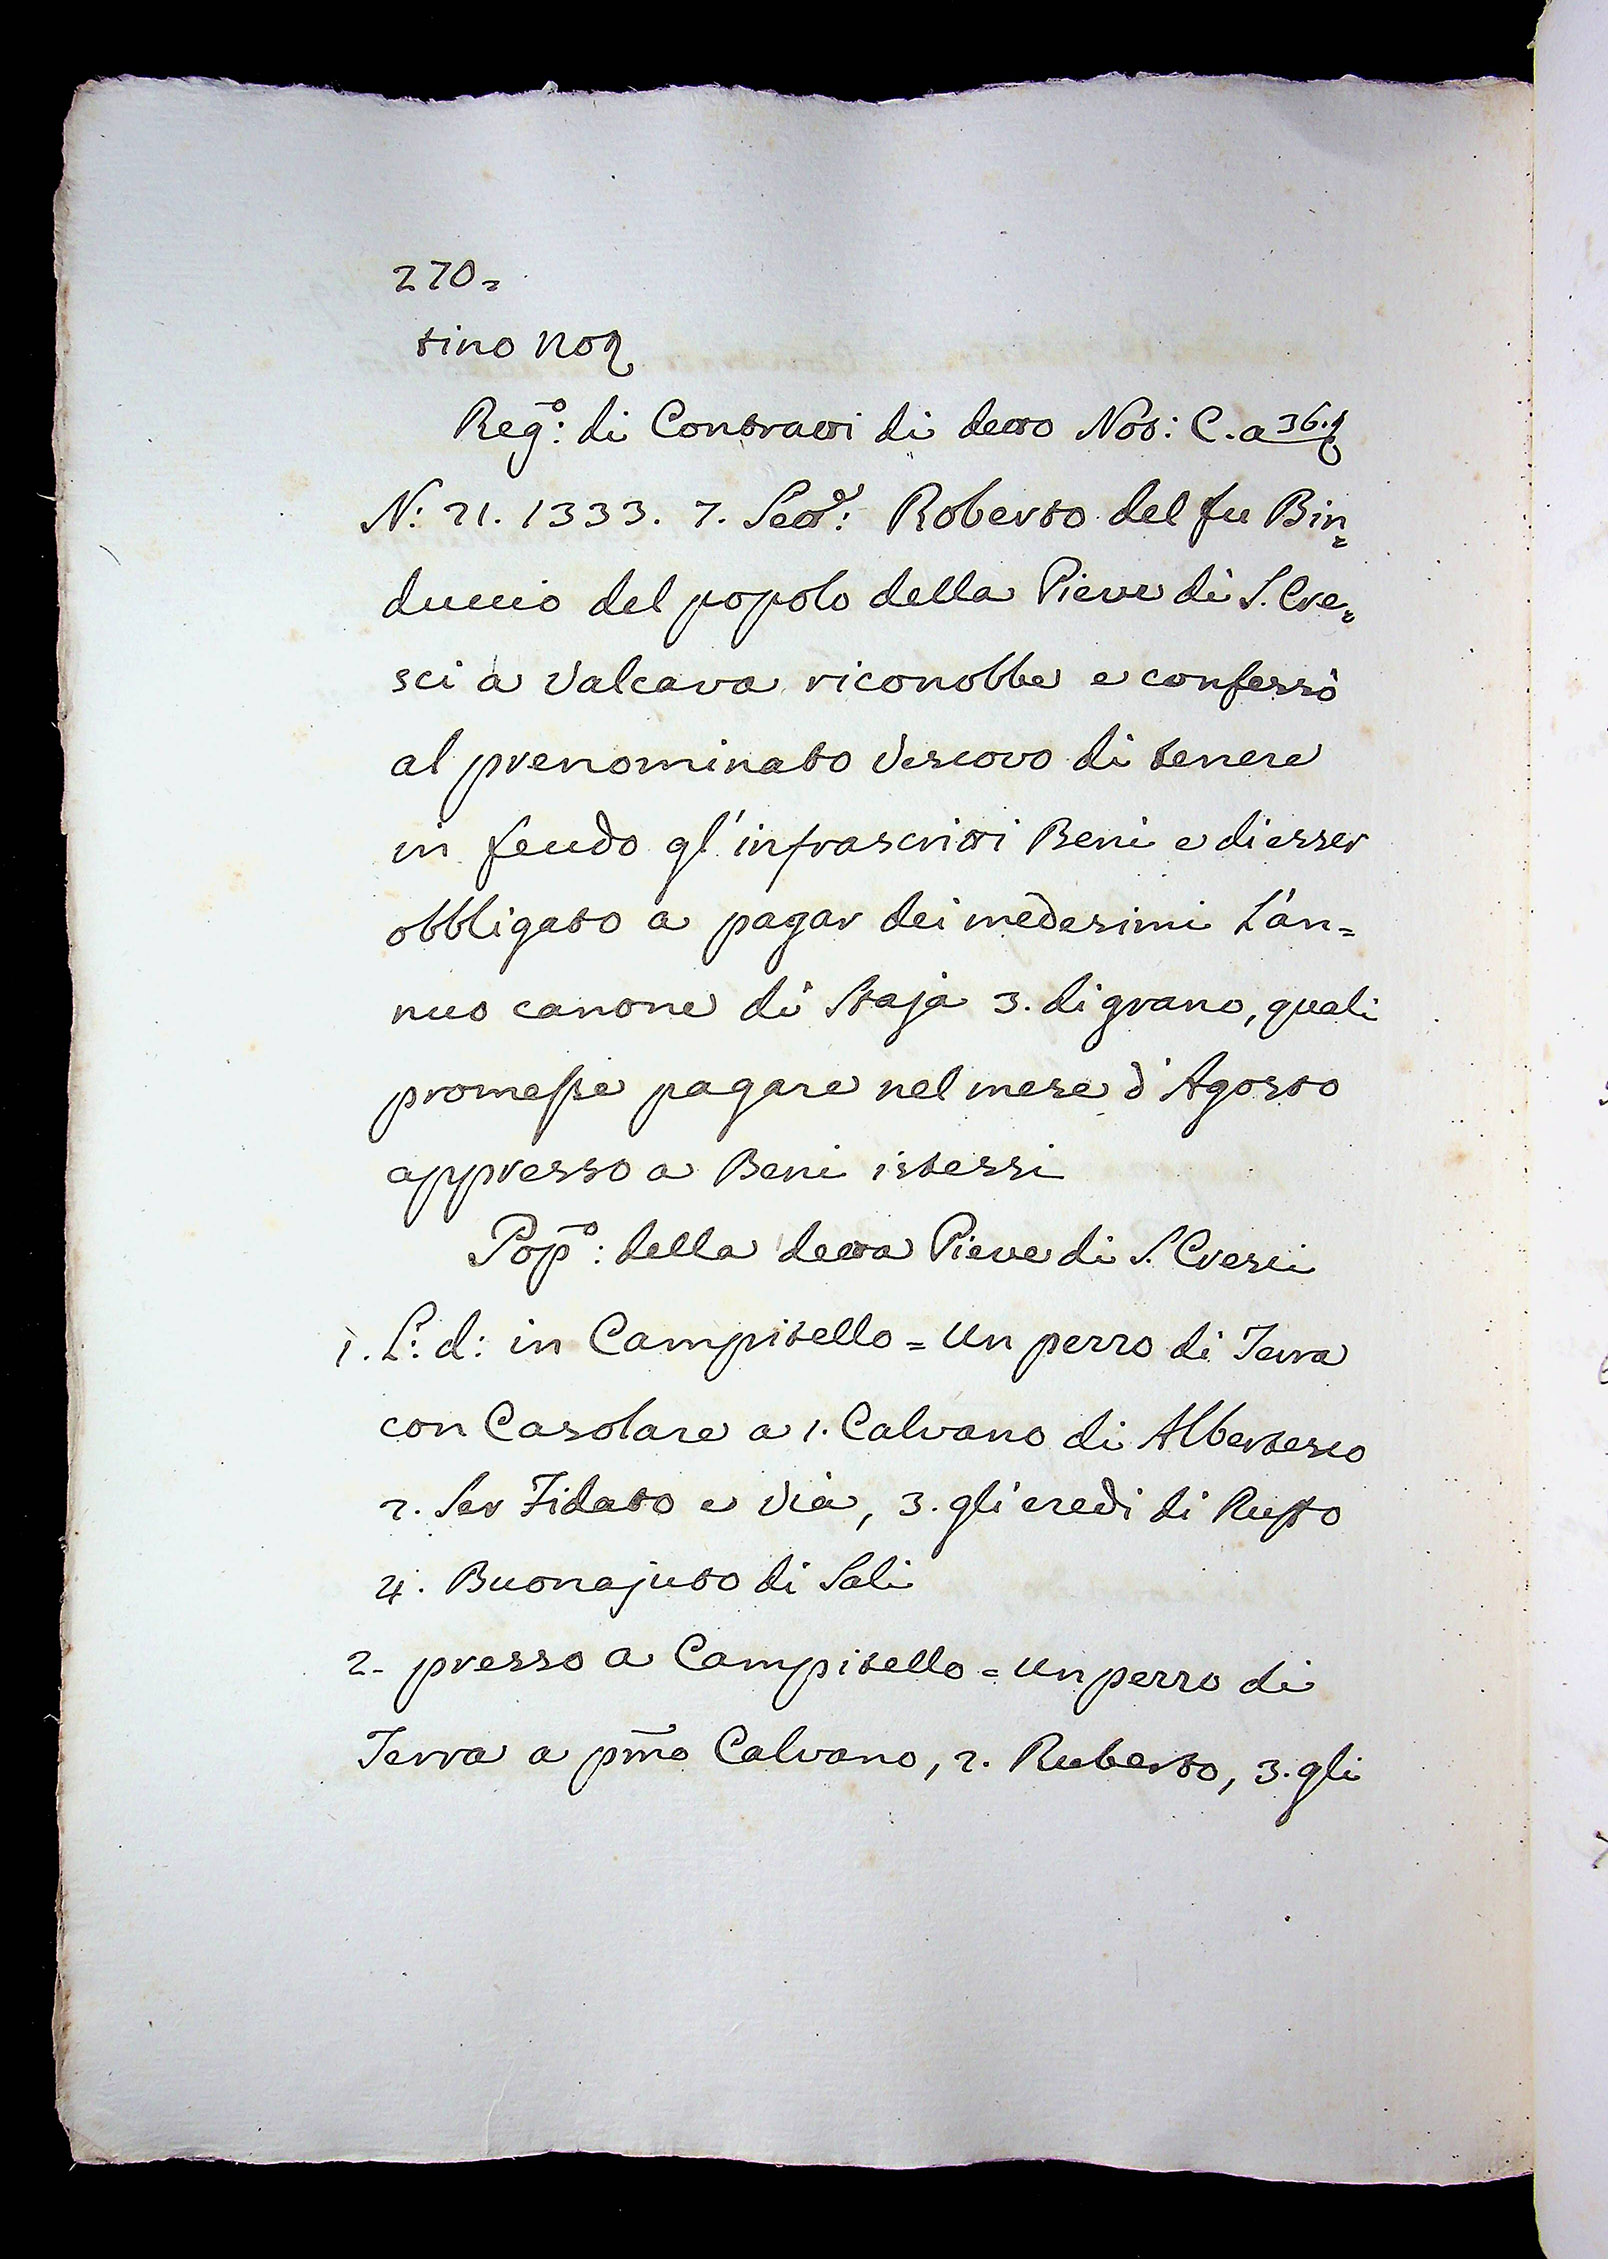 270=
tino Not
Reg:o di Contratti di detto Not: C. a 36.t
N: 21. 1333. 7. Sett: Roberto del fu Bin=
duccio del popolo della Pieve di S. Cre=
sci a Valcava riconobbe e confessò
al prenominato Vescovo di tenere
in feudo gl'infrascritti Beni e di esser
obbligato a pagar dei medesimi L'an=
nuo canone di Staja 3. di grano, quali
promesse pagare nel mese d'Agosto
appresso a Beni istessi
Pop:o della detta Pieve di S. Cresci
1. L: d: in Campitello = Un pezzo di Terra
con Casolare a 1. Calvano di Albertesco
2. Ser Fidato e Via, 3. gli eredi di
4. Buonajuto di Sali
2- presso a Campitello = Un pezzo di
Terra a pmo Calvano, 2. Ruberto, 3. gli